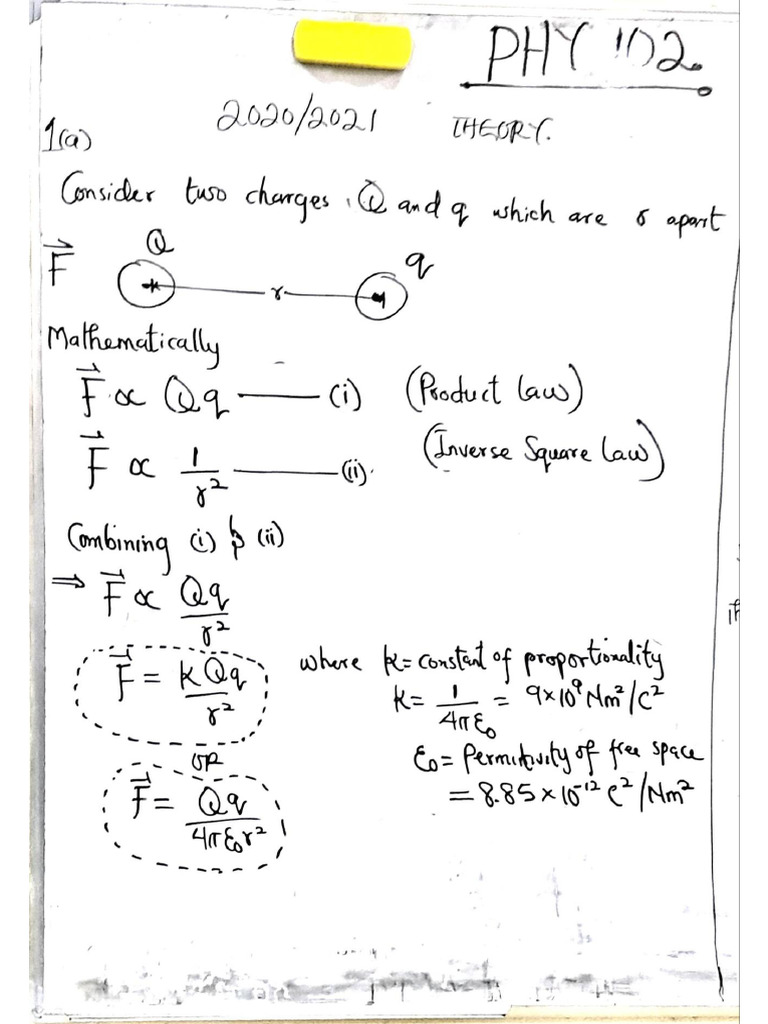 PHY 102
2020/2021 THEORY.
1(a)
Consider two charges, Q and q which are r apart
F⃗ Q r q
Mathematically
F⃗ ∝ Qq ——— (i) (Product law)
F⃗ ∝ 1/r² ——— (ii). (Inverse Square law)
Combining (i) & (ii)
⇒ F⃗ ∝ Qq/r²
F⃗ = kQq/r² where k = constant of proportionality
K = 1/4πε₀ = 9×10⁹ Nm²/C²
OR ε₀ = Permitivity of free space
F⃗ = Qq/4πε₀r² = 8.85 × 10⁻¹² C²/Nm²